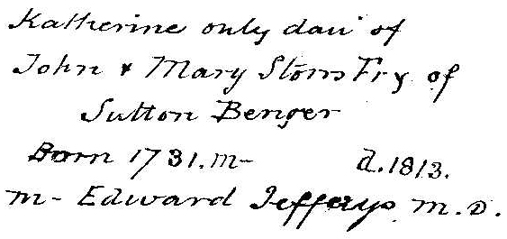 Katherine only dau' of
John & Mary Storrs Fry of
Sutton Benger
Born 1731. m- d. 1813.
m- Edward Jefferys M.D.